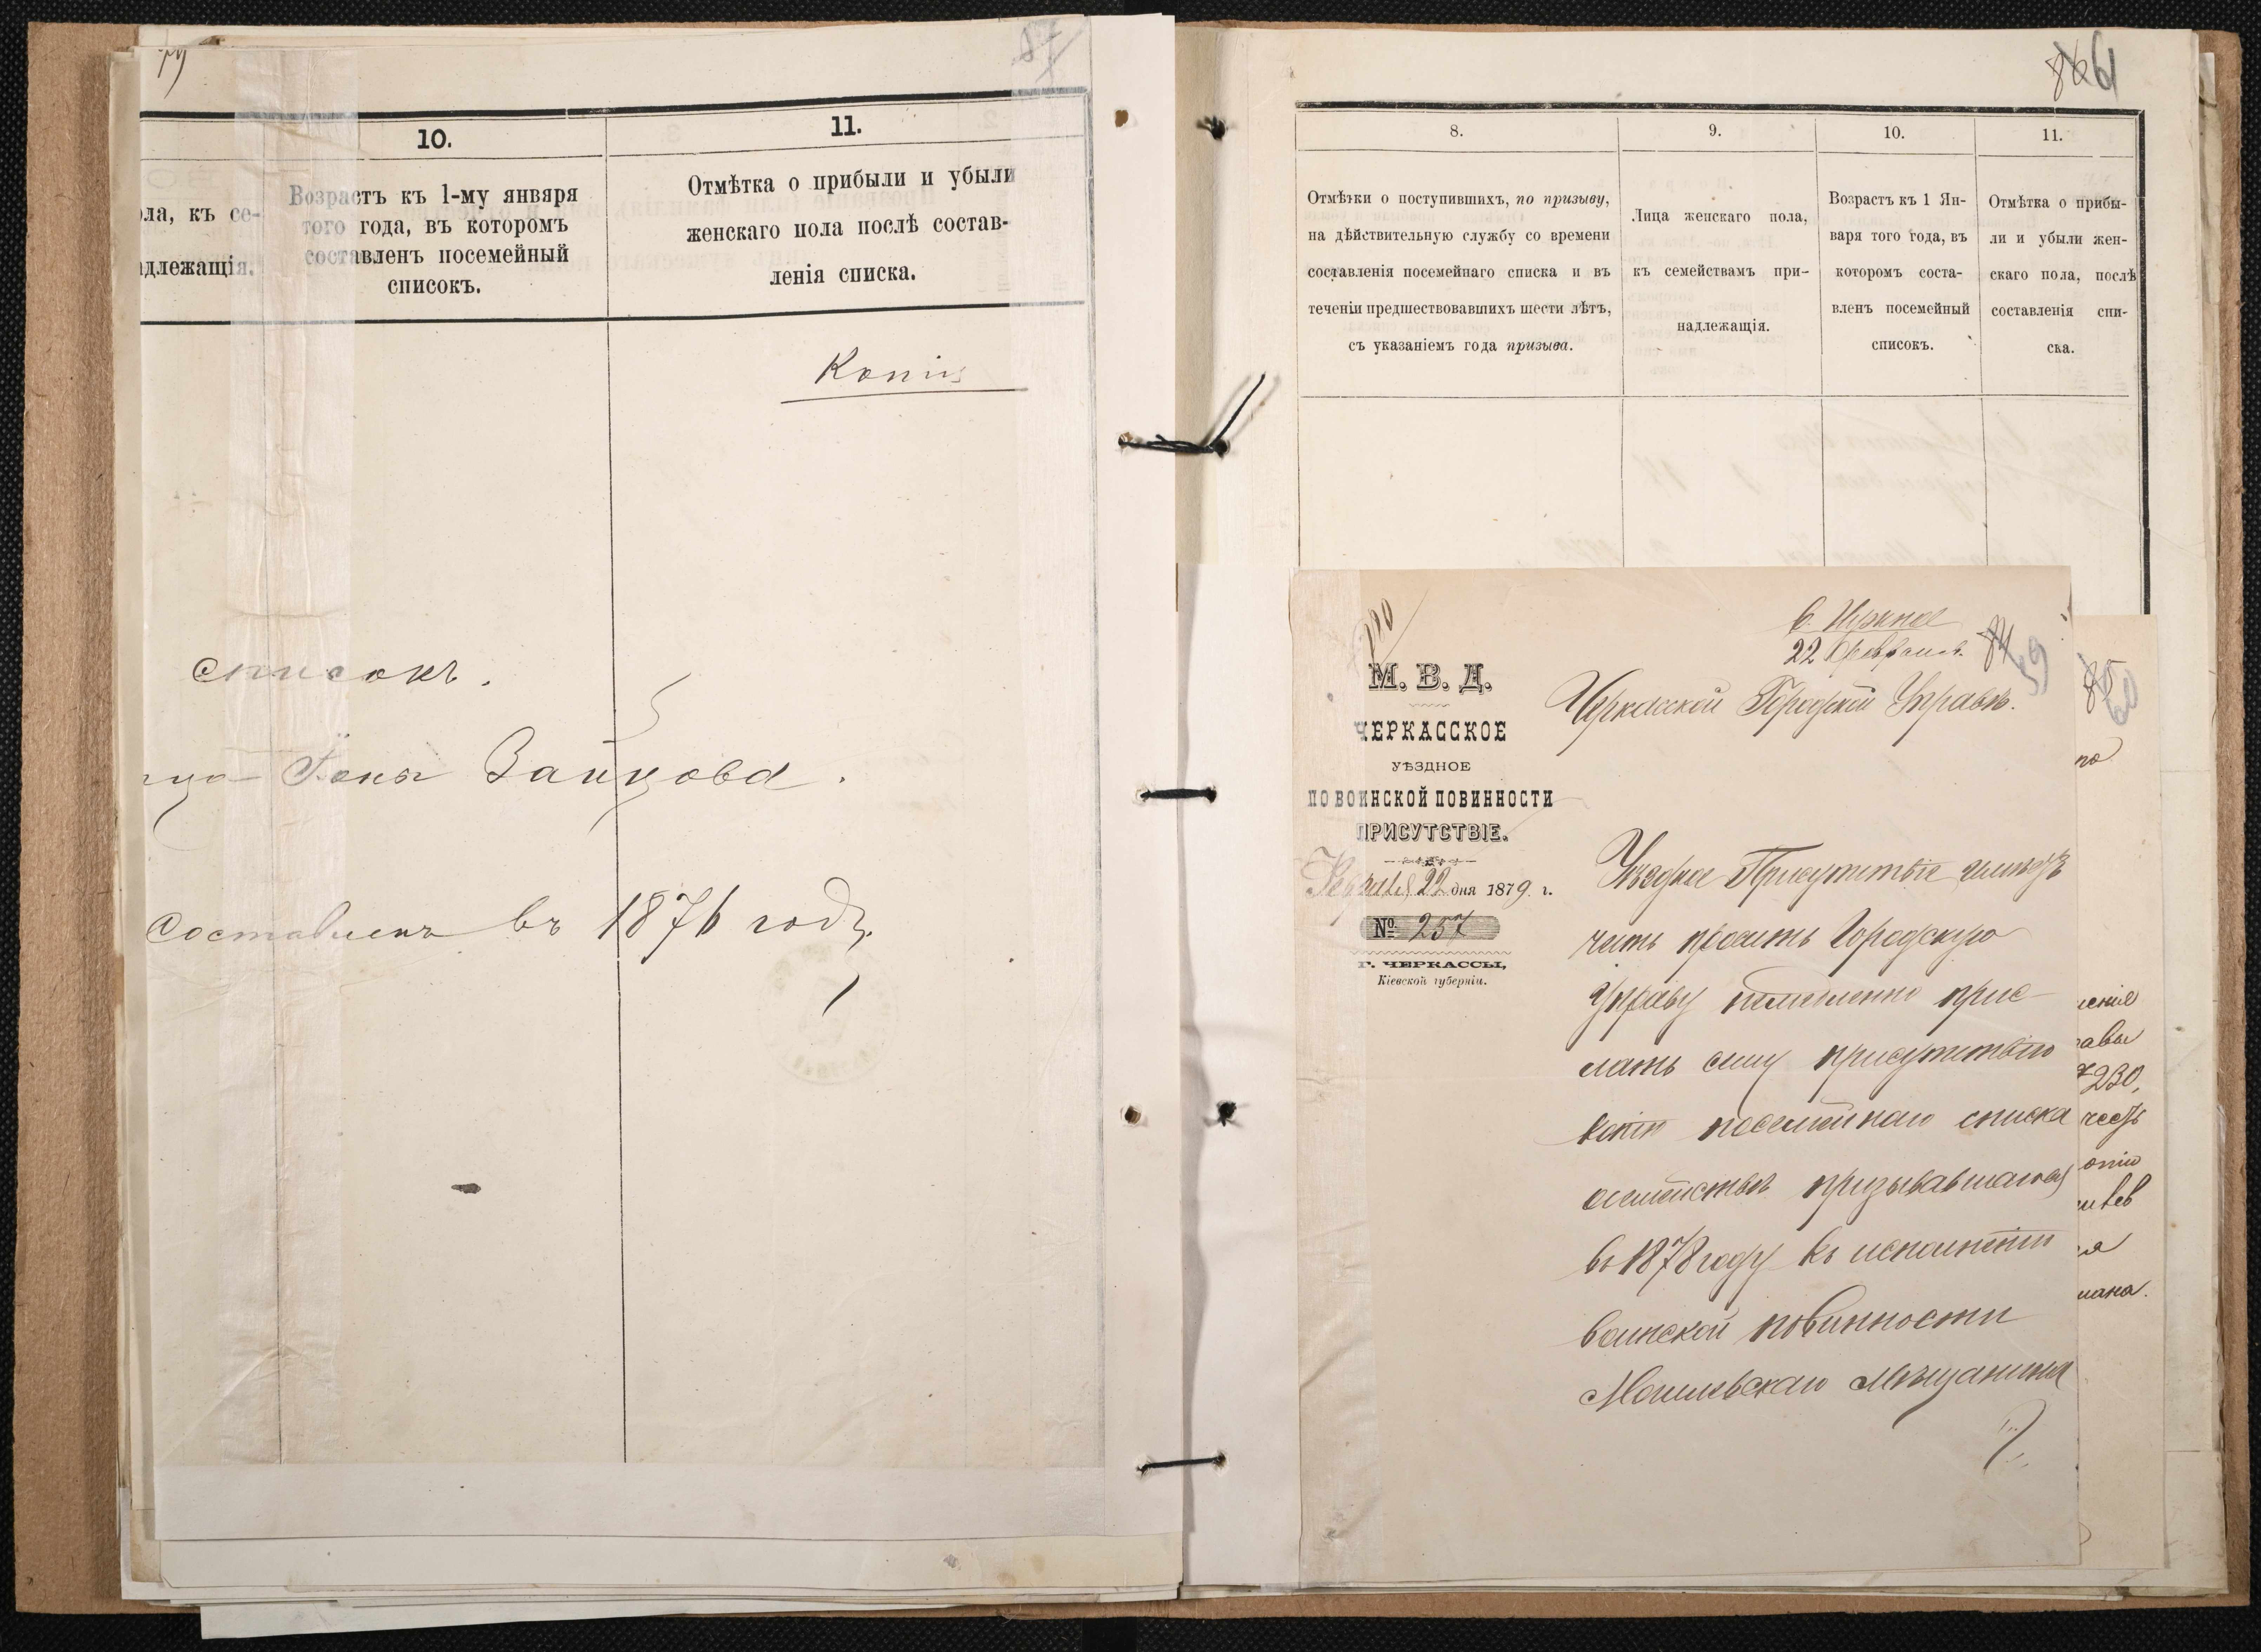 10.
11.
ола, къ се-
адлежащія.
Возрастъ къ 1-му января
того года, въ которомъ
составленъ посемейный
списокъ.
Отмѣтка о прибыли и убыли
женскаго пола послѣ состав-
ленія списка.
Копія
списокъ.
Зайцова.
Составленъ въ 1876 году.
61
8.
9.
10.
11.
Отмѣтки о поступившихъ, по призыву,
на дѣйствительную службу со времени
составленія посемейнаго списка и въ
теченіи предшествовавшихъ шести лѣтъ,
съ указаніемъ года призыва.
Лица женскаго пола,
къ семействамъ при-
надлежащія.
Возрастъ къ 1 Ян-
варя того года, въ
которомъ соста-
вленъ посемейный
списокъ.
Отмѣтка о прибы-
ли и убыли жен-
скаго пола, послѣ
составленія спи-
ска.
22 февраля.
59
М. В. Д.
ЧЕРКАССКОЕ
УѢЗДНОЕ
ПО ВОИНСКОЙ ПОВИННОСТИ
ПРИСУТСТВІЕ.
Февраля 22 дня 1879 г.
№ 257
Г. ЧЕРКАССЫ,
Кіевской губерніи.
Черкасской Городской Управѣ.
Уѣздное Присутствіе имѣетъ
честь просить Городскую
Управу немедленно прис-
лать сему присутствію
копію посемейнаго списка
о семействѣ призывавшагося
въ 1878 году къ исполненію
воинской повинности
Мошневскаго мѣщанина
60
по
ленія
равы
230,
честь
опію
ся
мана.